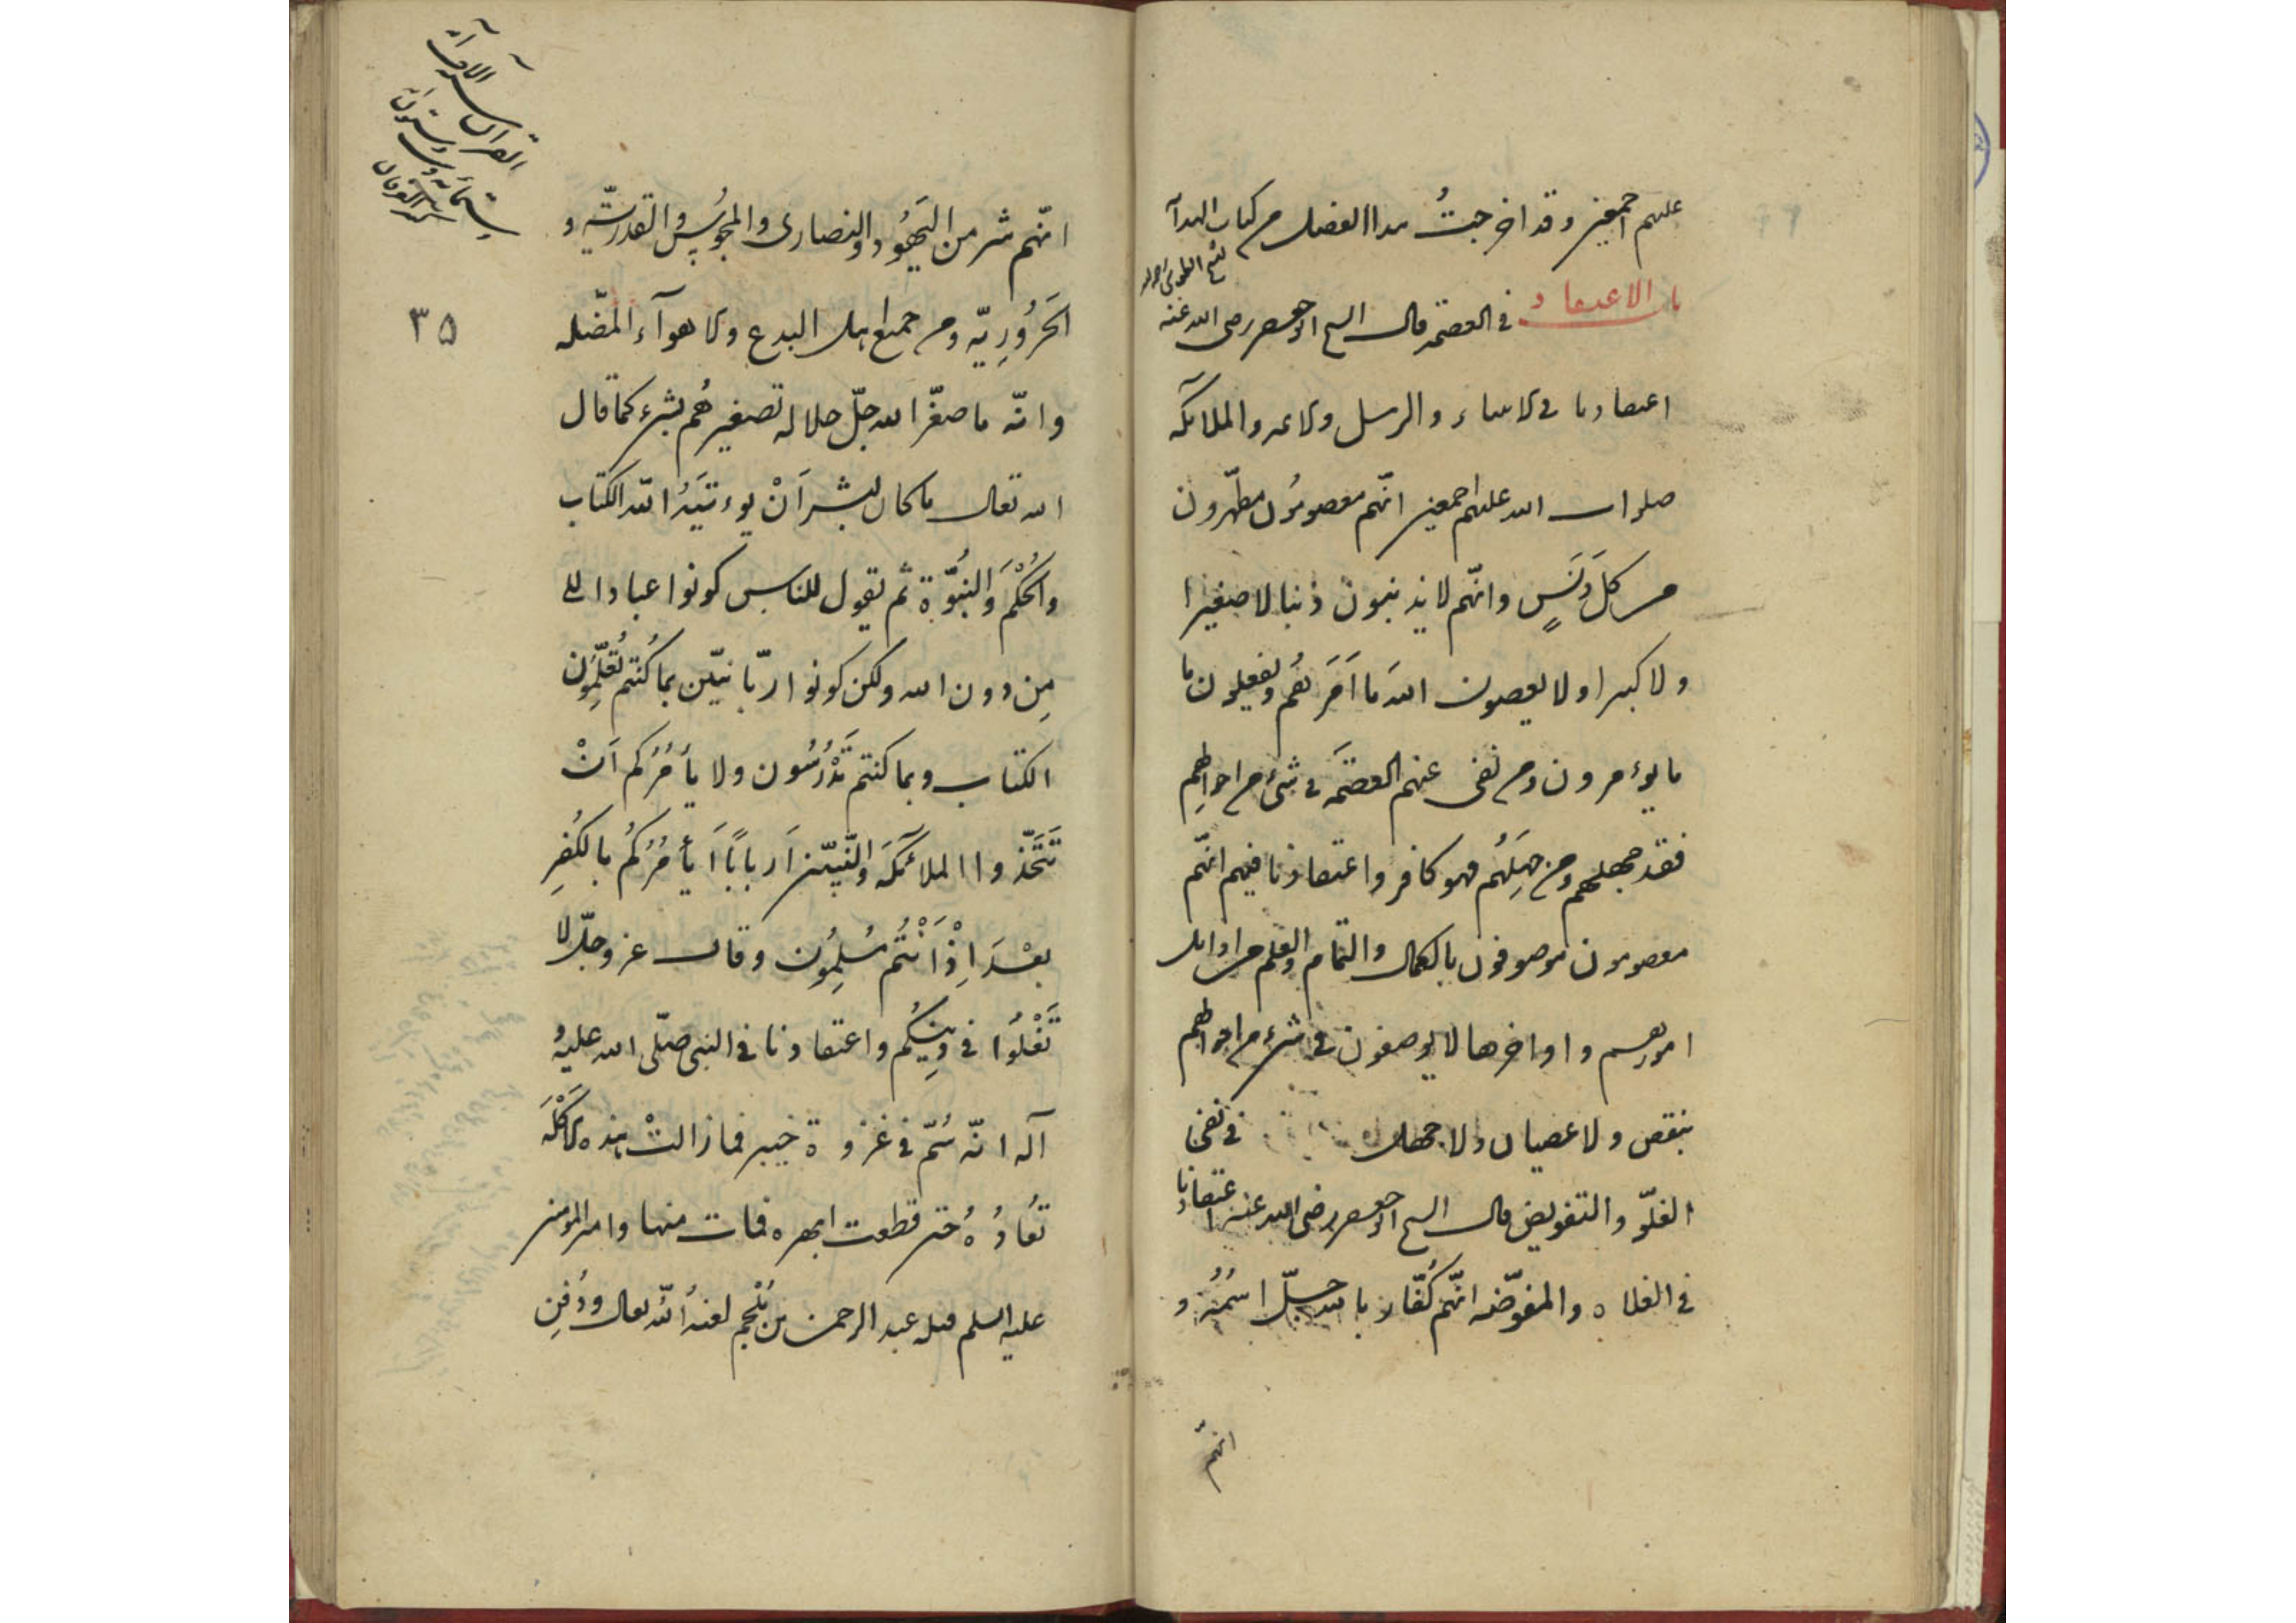 عليهم اجمعين وقد اخرجتُ هذا الفصل من كتاب الهداية
باب الاعتقاد في العصمة قال الشيخ ابو جعفر رضى الله عنه
اعتقادنا في الانبياء والرسل والائمه والملائكة
صلوات الله عليهم اجمعين انّهم معصومُون مطهّرون
من كلّ دَنَسٍ وانّهم لا يذنبون ذنبا لا صغيرا
ولا كبيرا ولا يعصون اللهَ ما اَمَرَهُم ويفعلون ما
ما يؤمرون ومن نفى عنهم العصمَة في شئ من احوالِهِم
فقد جهلهم ومن جَهِلَهُم فهو كافر واعتقادنا فيهم انّهم
معصومون موصوفون بالكمال والتمام والعلم من اوايل
امورهم واواخرها لا يوصفون في شئ من احوالهم
بنقص ولا عصيان ولا جهل في نفى
الغلّو والتفويض قال الشيخ ابو جعفر رضى الله عنه اعتقادنا
في الغلاه والمفوّضه انّهم كُفّار بالله جلّ اسمُهُ و
انّهم
انّهم شر من اليَهُود والنصارى والمجُوسِ والقدريّه و
الحَرُورِيّه ومن جميع اهل البدع والاهوآء المضّله
وانّه ما صغّر الله جلّ جلاله تصغيرهُم بشئ كما قال
الله تعالى ما كان لبشر اَنْ يوءتيَهُ الله الكتاب
والحُكْمَ والنبُوّة ثم يقول للناس كونوا عبادا لى
مِن دون الله ولكن كونوا ربّانيّين بما كُنتم تُعَلّمُون
الكتاب وبما كنتم تَدْرُسُون ولا يأمُرُكم اَنْ
تَتَّخذوا الملآئكَه والنّبيّين اَرباباً اَيأمُرُكُم بالكُفرِ
بعْدَ اِذْ اَنْتُم مُسلِمُون وقال عز وجلّ لا
تَغْلُوا في دِينِكُم واعتقادنا في النبى صلّى الله عليهُ
آله انّه سُمّ في غزوة خيبر فما زالتْ هذه الاَكْلَه
تُعَادُهُ حتى قطعت ابهره فمات منها وامير المومنين
عليه السلم قتله عبد الرحمن بن مُلْجم لعنهُ اللهُ تعالى ودُفِن
٣٥